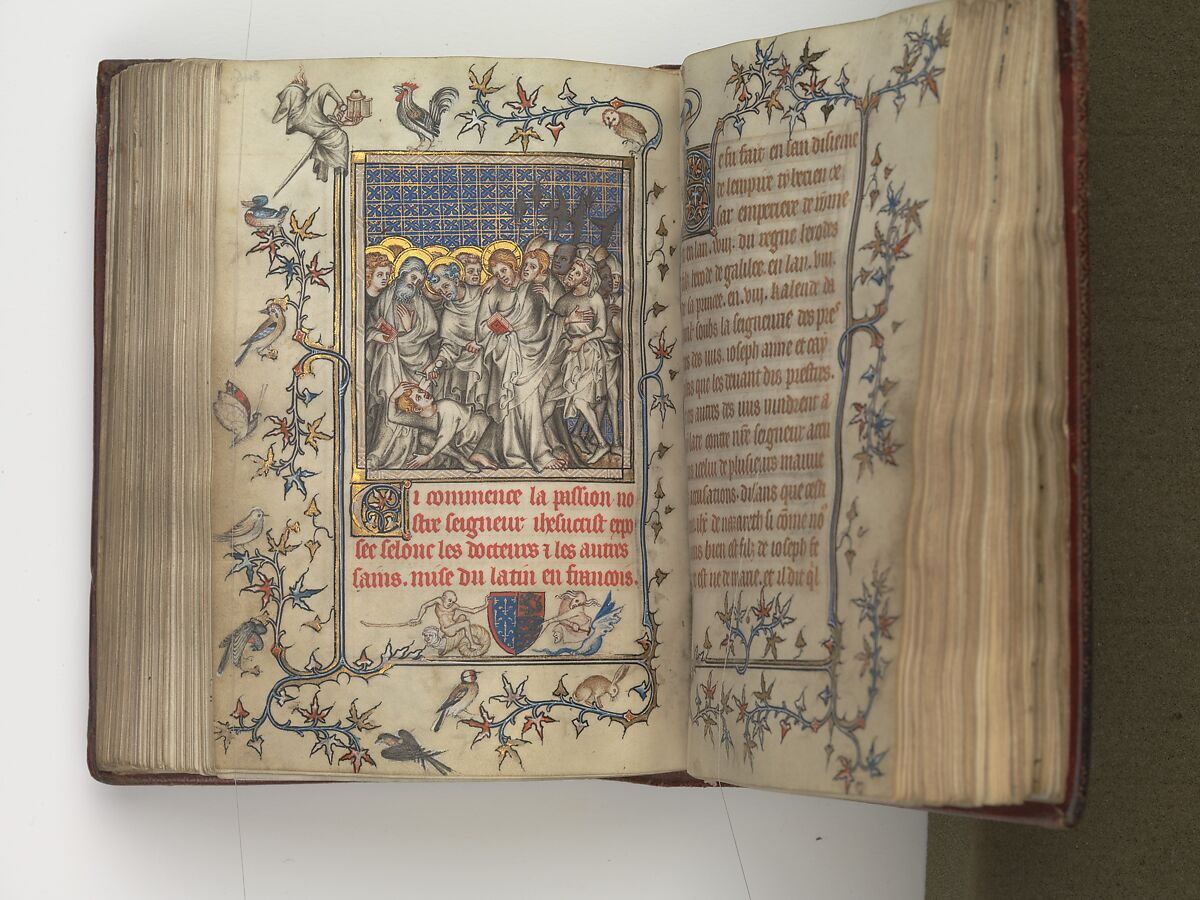 Ci commence la passion no
stre seigneur ihesucrist exp
see selonc les docteurs ⁊ les autres
sains. mise du latin en francois.
e fu fait en lan disieme
de lempire tyberien ce
sar emperiere de rome
en lan. viiij. du regne herodes
herode de galilee. en lan. viii.
sa prince. en. viij. kalende da
soubs la seigneurie des pre
des iuis. ioseph anne et cay
que les deuant dis prestres.
autres des iuis vindrent a
contre nre seigneur
icelui de plusieurs mauue
disans que cesti
de nazareth si come no
bien est filz de ioseph fe
est ne de marie. et il dit ql